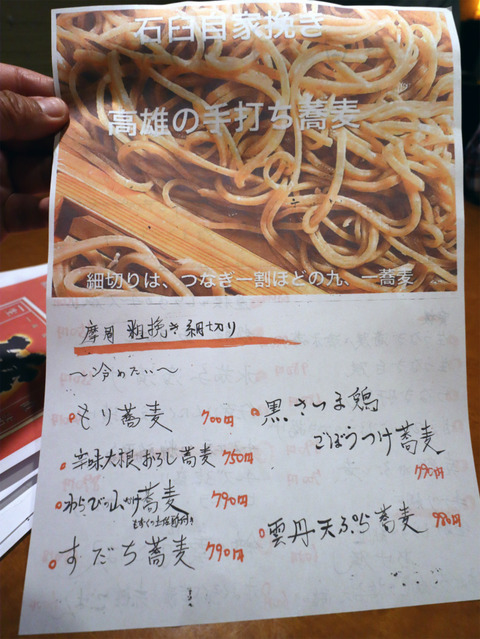 石臼自家挽き
高雄の手打ち蕎麦
細切りは、つなぎ一割ほどの九、一蕎麦
粗挽き細切り
〜冷めたい〜
もり蕎麦 700円
辛味大根おろし蕎麦 750円
わらびの山かけ蕎麦 790円
すだち蕎麦 790円
黒さつま鶏
ごぼうつけ蕎麦
790円
雲丹天ぷら蕎麦 980円